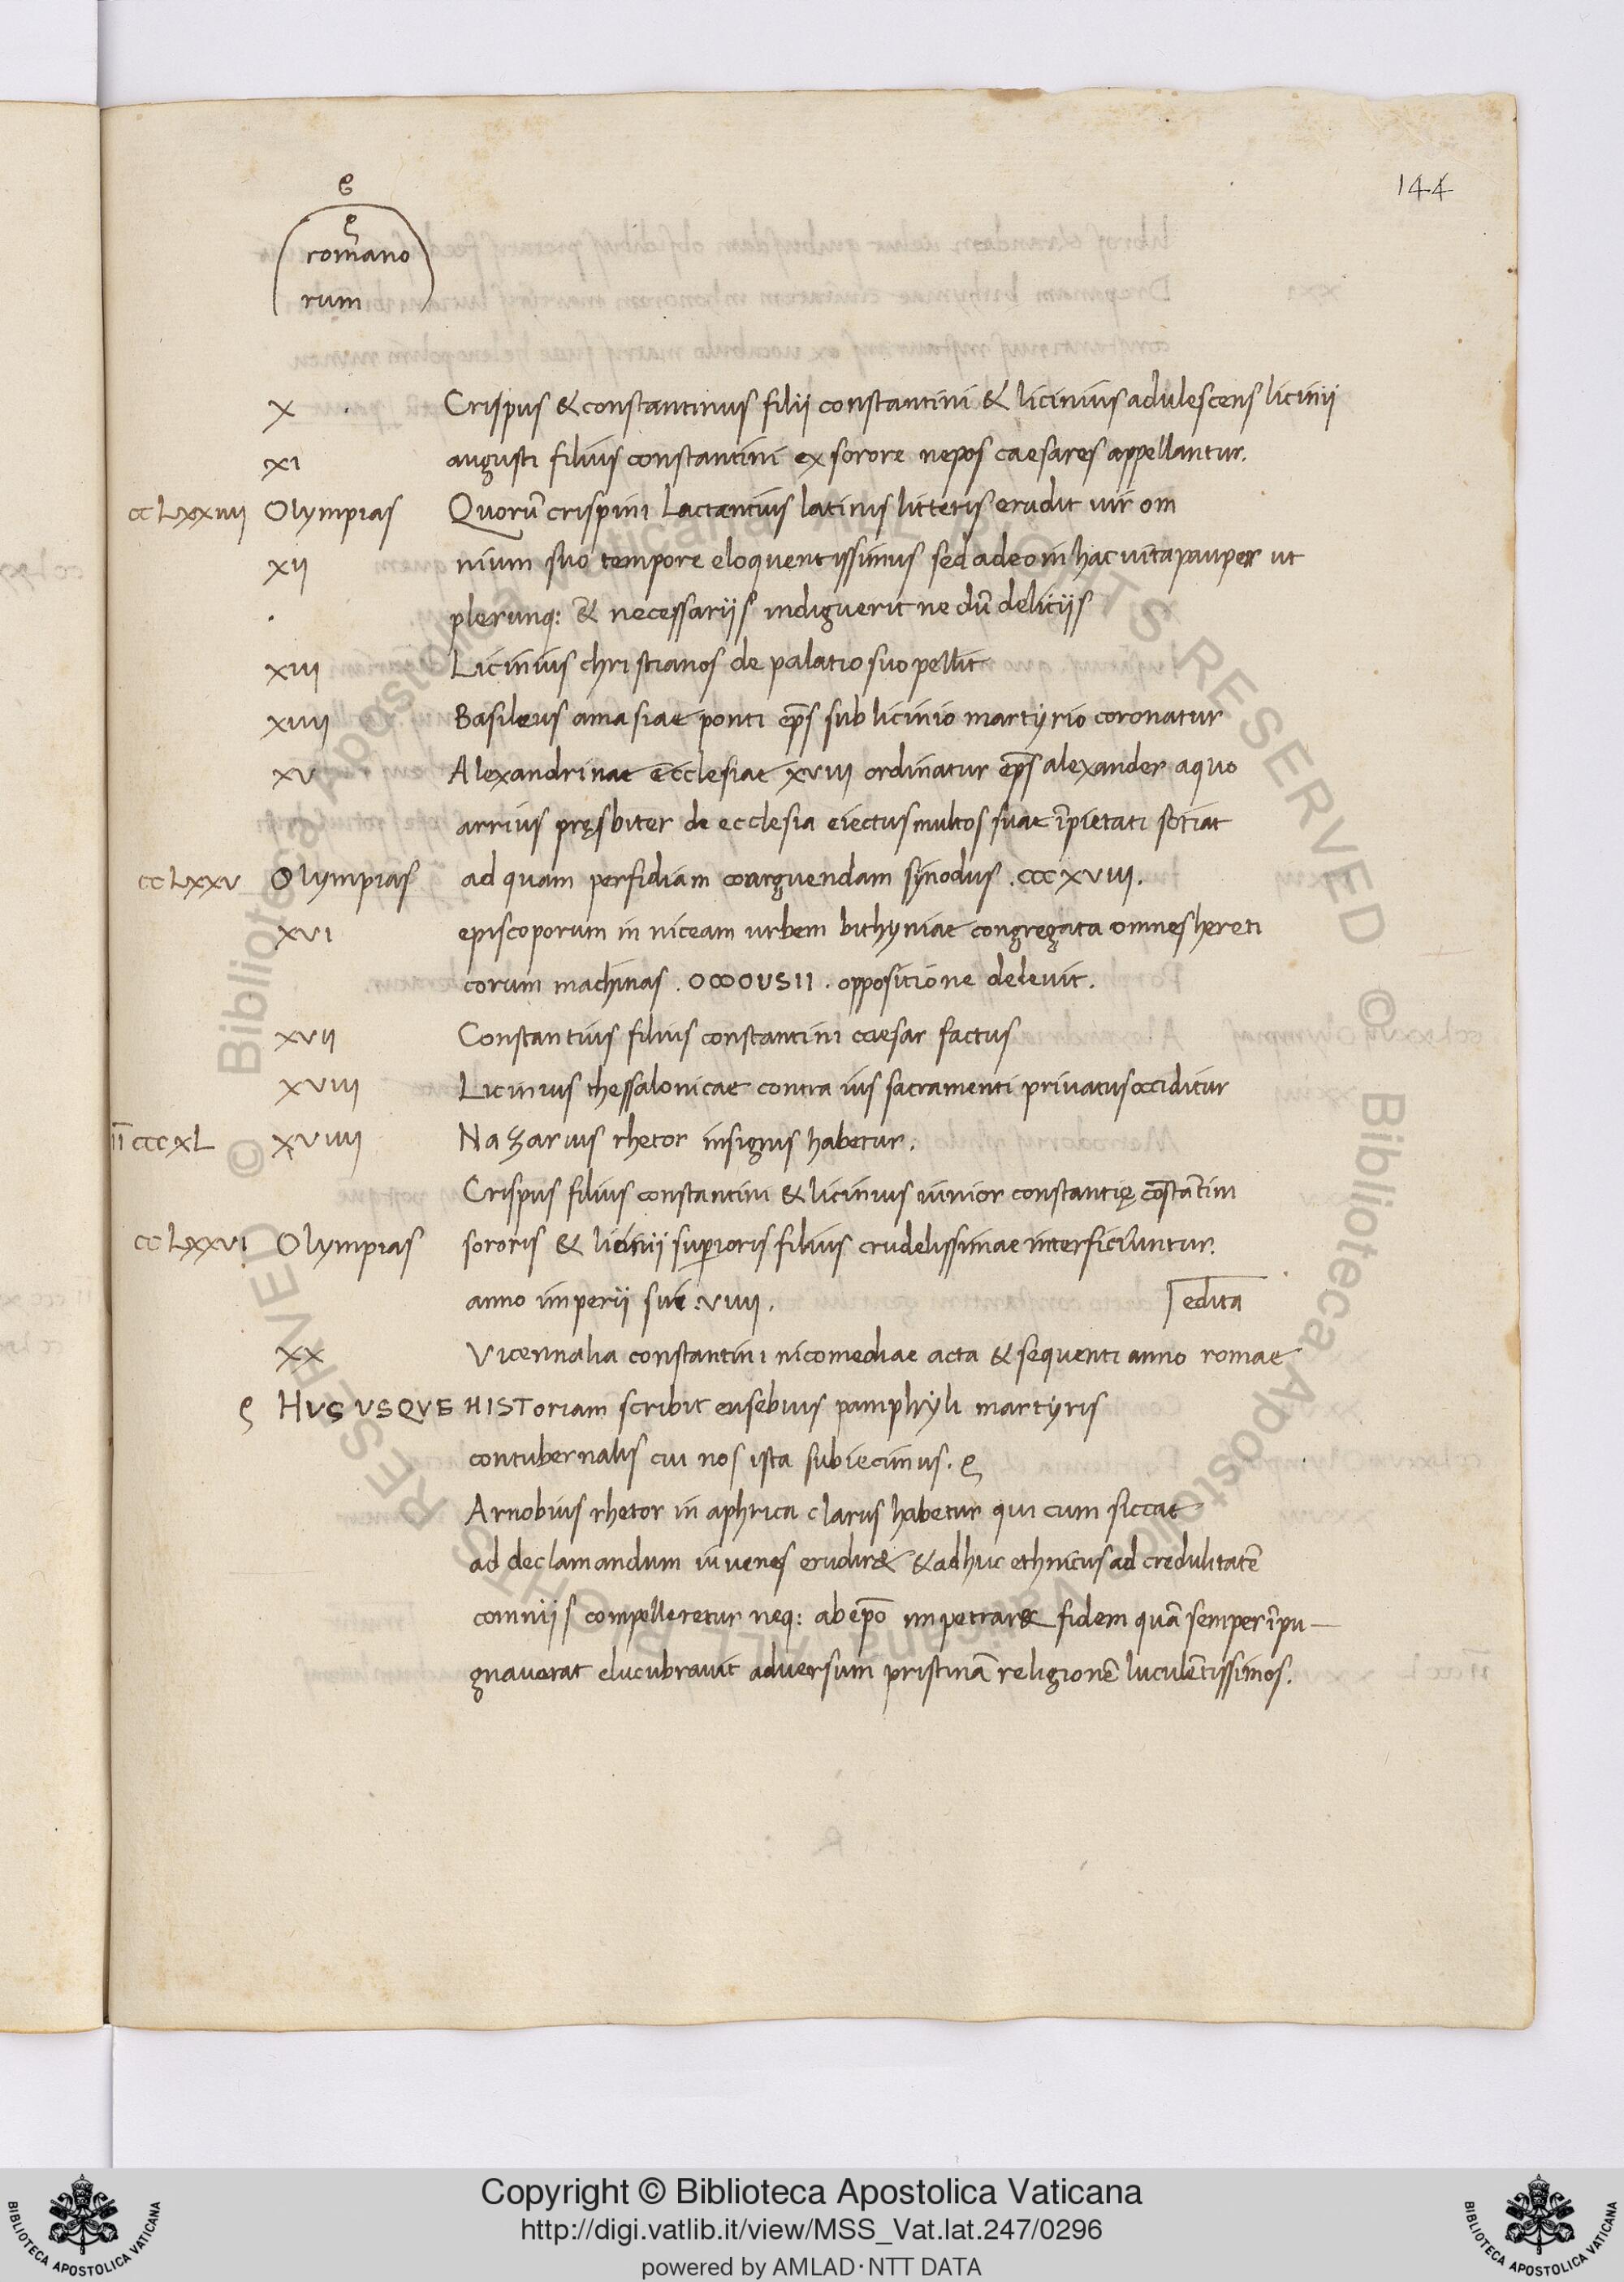 144
romano
rum
X Crispus & constantinus filii constantini & licinius adulescens licinii
XI augusti filius constantini ex sorore nepos caesares appellantur.
cc Lxxiiii Olympias Quorū crispini Lactantius latinis litteris erudit uir om
XII nium suo tempore eloquentissimus sed adeo in hac uita pauper ut
plerunq: & necessariis indiguerit ne dū delitiis
XIII Licinius christianos de palatio suo pellit
XIIII Basileus amasiae ponti ep̄s sub licinio martyrio coronatur
XV Alexandrinae ecclesiae XVIII ordinatur ep̄s alexander a quo
arrius pręsbiter de ecclesia eiectus multos suae īpietati sotiat
cc Lxxv Olympias ad quam perfidiam coarguendam synodus .cccxviii.
XVI episcoporum in niceam urbem bithyniae congregata omnes hereti
corum machinas . OMOUSII . oppositione deleuit.
XVII Constantius filius constantini caesar factus
XVIII Licinius thessalonicae contra ius sacramenti priuatus occiditur
II cccXL XVIIII Nazarius rhetor insignis habetur.
Crispus filius constantini & licinius iunior constantię cōstātini
cc Lxxvi Olympias sororis & licinii superioris filius crudelissimae interficiuntur.
anno imperii sui .viiii. edita
XX Vicennalia constantini nicomediae acta & sequenti anno romae
HUCUSQUE HISToriam scribit eusebius pamphyli martyris
contubernalis cui nos ista subiecimus.
Arnobius rhetor in aphrica clarus habetur qui cum siccae
ad declamandum iuuenes erudir& & adhuc ethnicus ad credulitatē
comniis compelleretur neq: ab ep̄o impetrar& fidem quā semper īpu—
gnauerat elucubrauit aduersum pristinā religionē luculētissimos.
© Biblioteca Apostolica Vaticana ALL RIGHTS RESERVED
© Biblioteca Apostolica Vaticana ALL RIGHTS RESERVED
BIBLIOTECA APOSTOLICA VATICANA
Copyright © Biblioteca Apostolica Vaticana
http://digi.vatlib.it/view/MSS_Vat.lat.247/0296
powered by AMLAD·NTT DATA
BIBLIOTECA APOSTOLICA VATICANA